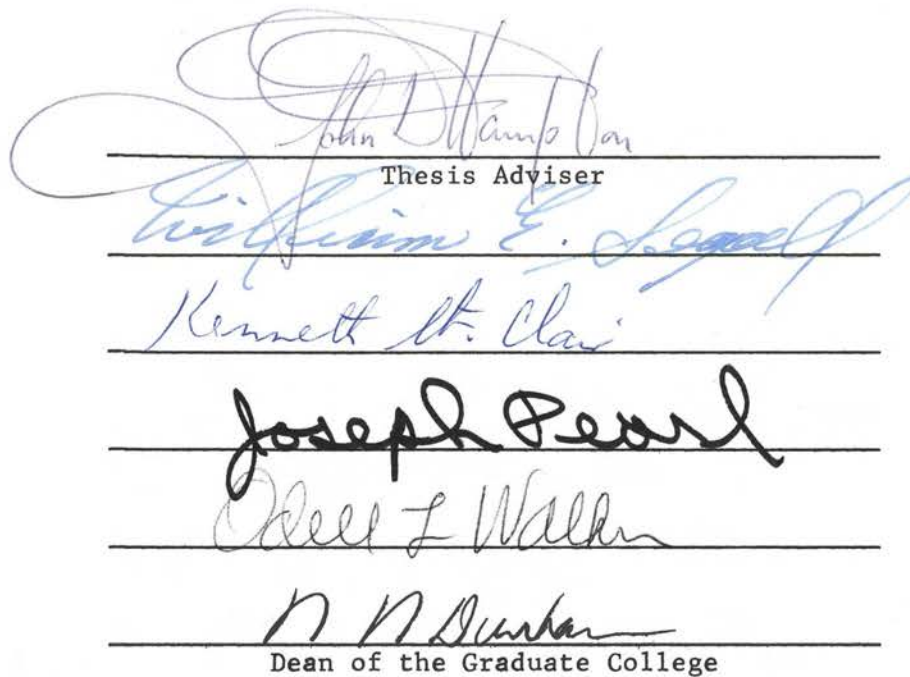 John D Hampton
Thesis Adviser
William E. Segall
Kenneth St. Clair
Joseph Pearl
Odell L Walker
N N Durham
Dean of the Graduate College